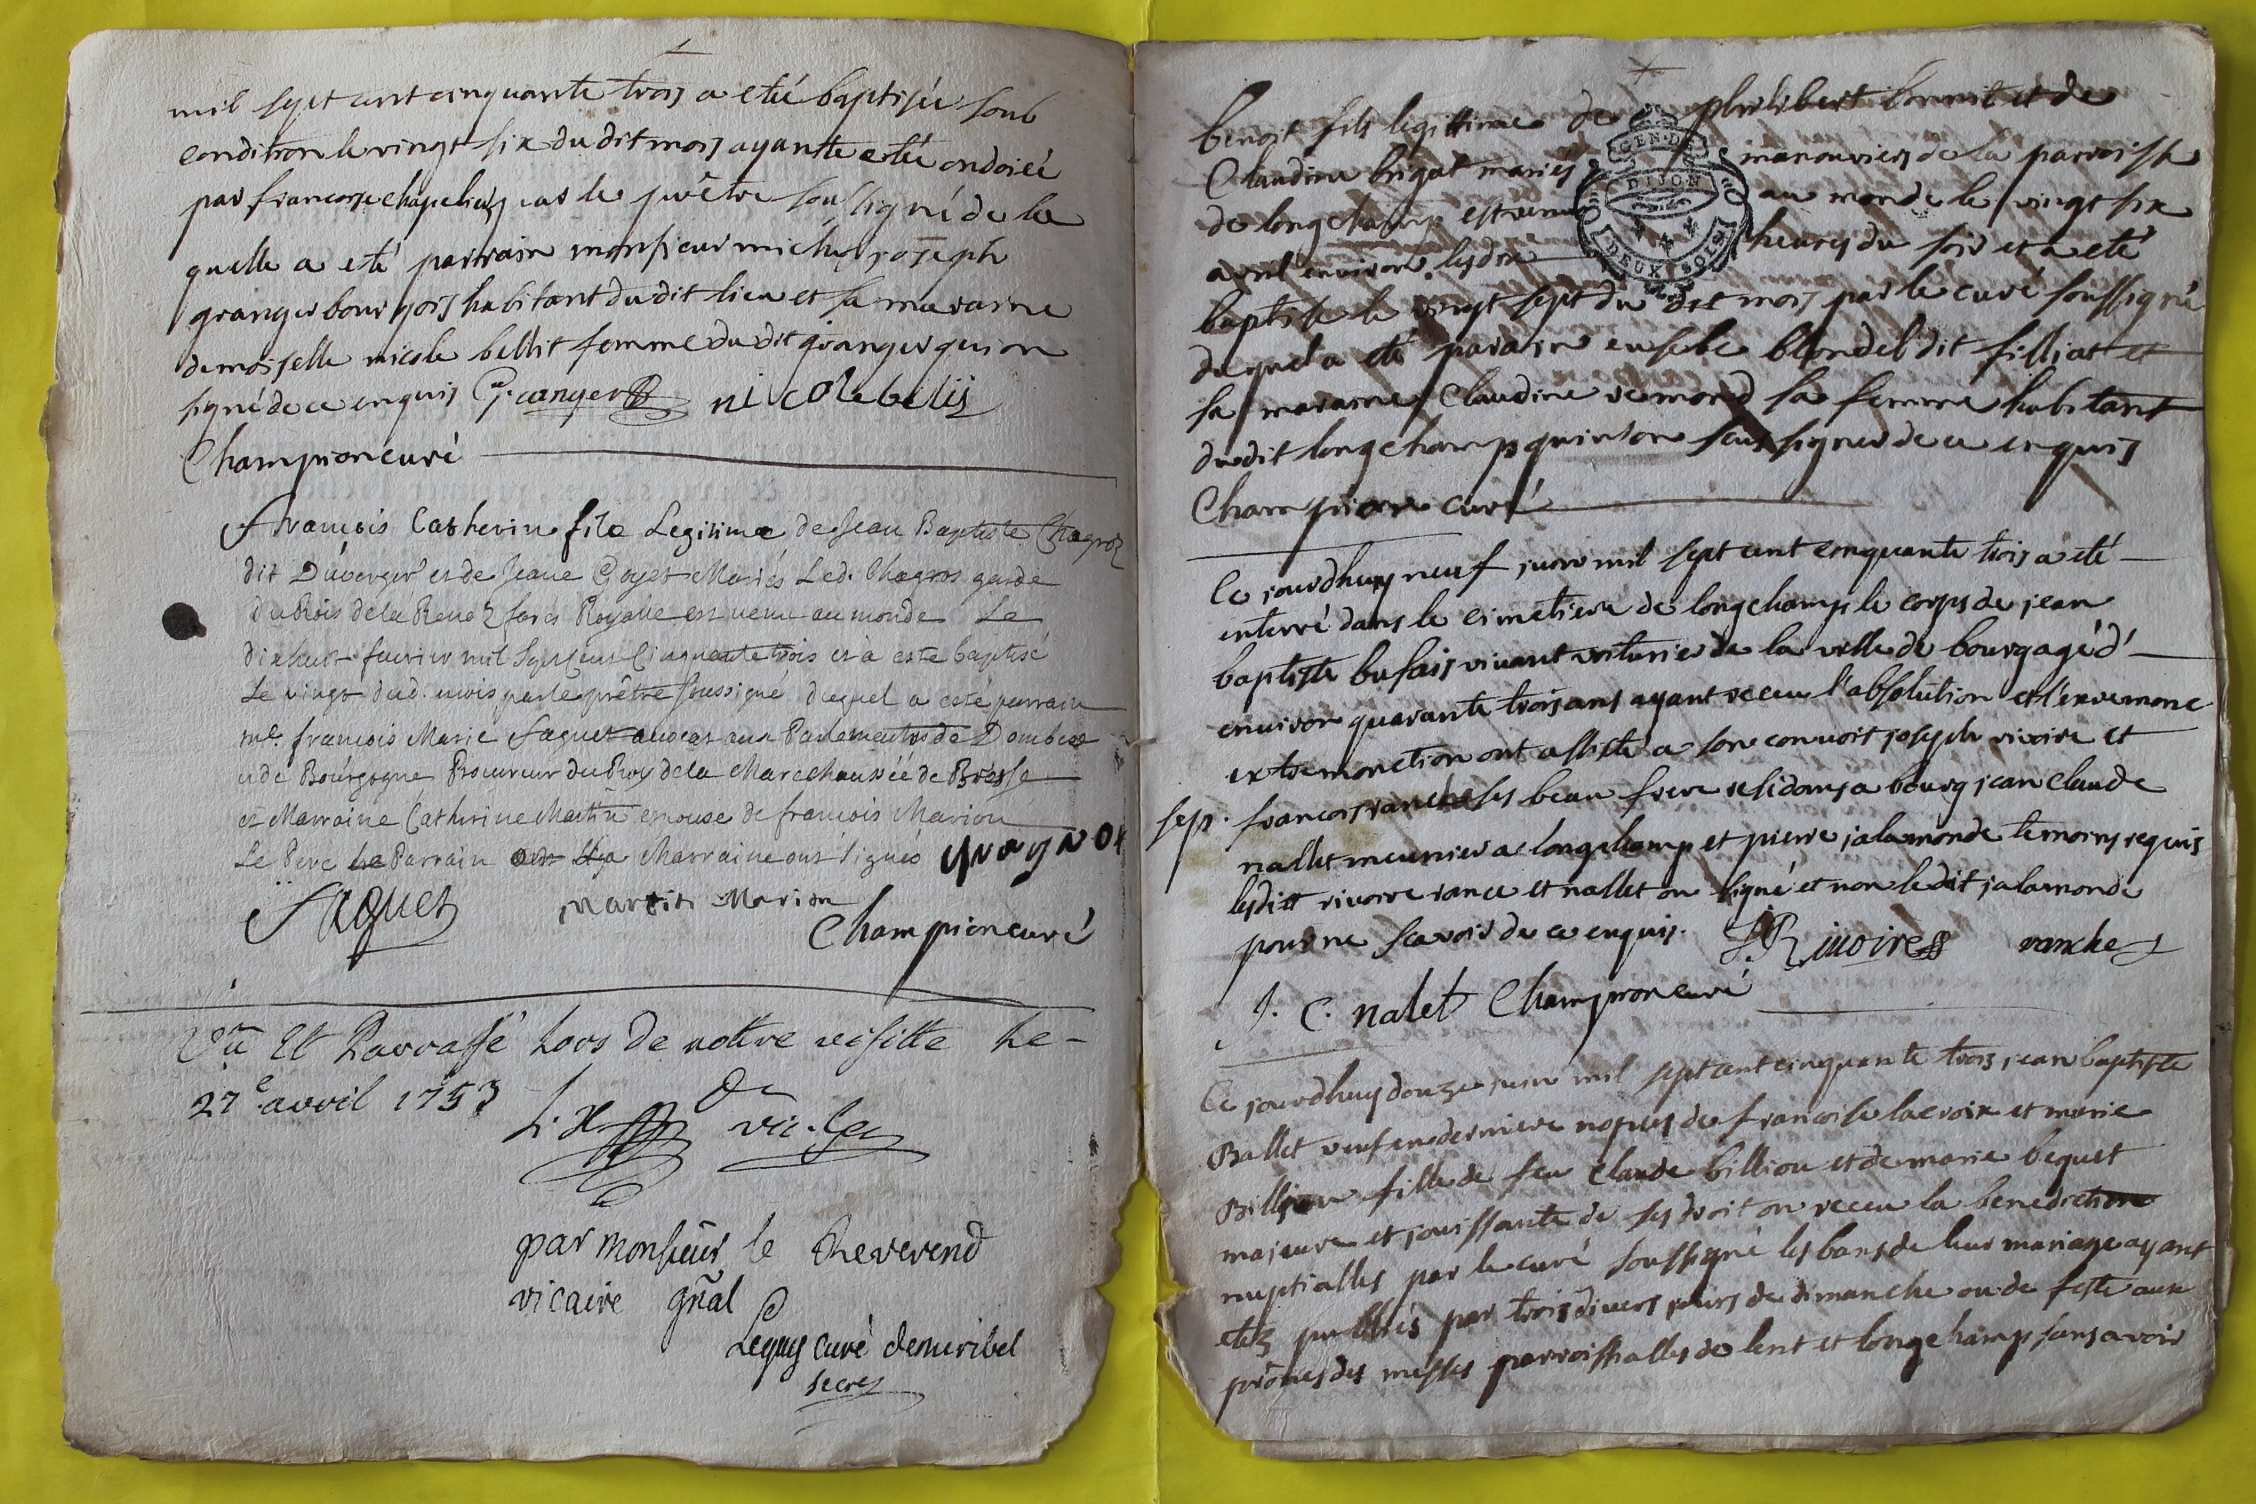 mil sept cent cinquante trois a eté baptisée soub
condition le vingt six du dit mois ayante eté ondoiée
par francoise chapelier par le prêtre soussigné de la
quelle a eté parrain monsieur michel joseph
granger bourgois habitant du dit lieu et sa maraine
demoiselle nicole bellit femme du dit granger qui on
signé de ce enquis Granger nicole belis
Champion curé
François Catherin fils Legitime de Jean Baptiste Chagros
dit Duverger et de Jeane Goyet Mariés Led. Chagros garde
du Rois de la forés Royalle est venu au monde Le
dixhuit fevrier mil Septcent Cinquante trois et à esté baptisé
Le vingt dud. mois par le prêtre soussigné duquel a esté parrain
me. françois Marie Faguet avocat aux Parlements de Dombes
et de Bourgogne Procureur du Roy de la Marechaussée de Bresse
et Marraine Catherine Martin epouse de francois Marion
Le Pere Le Parrain et La Marraine ont signés
Faguet Martin Marion
Champion curé
Vu Et Parraffé hors de notre visitte ce
27e. avril 1753
vic. gen
par monsieur le Reverend
vicaire gñal
Leguy curé de miribel
secres
benoit fils legittime de philibert bonnit et de
Claudine brigat mariés manouvriers de la parroisse
de longchamp est venu au monde le vingt six
avril environ les dix heures du soir et a eté
baptise le vingt sept du dit mois par le curé soussigné
duquel a eté parain eusebe blondel dit filliat et
sa maraine Claudine remond sa femme habitant
du dit longchamp qui n'on sceu signer de ce enquis
Champion curé
GEN. D.
DIJON
DEUX SOLS
Ce jourdhuy neuf juin mil sept cent cinquante trois a eté
enterré dans le cimetiere de longchamp le corps de jean
baptiste bufais vivant voiturier de la ville de bourg agé d'
environ quarante trois ans ayant receu l'absolution et l'exremonc
extremonction ont assisté a son convoit joseph rivoire et
sep. francois ranche ses beau frere residans a bourg jean Claude
nallet meunier a longchamp et pierre jalamonde temoins requis
lesdit rivoire rance et nallet on signé et non le dit jalamonde
pour ne scavoir de ce enquis. J. Rivoire ranche
J. C. nalet Champion curé
Ce jourdhuy douze juin mil sept cent cinquante trois jean baptiste
Ballet veuf en derniere nopces de francoise lacroix et marie
Billion fille de feu Claude billiou et de marie beguet
majeure et jouissante de ses droit on receu la benediction
nuptialles par le curé soussigné les bans de leur mariage ayant
etez publiés par trois divers jours de dimanche ou de feste aux
prônes des messes parroissialles de lent et longchamp sans avoir